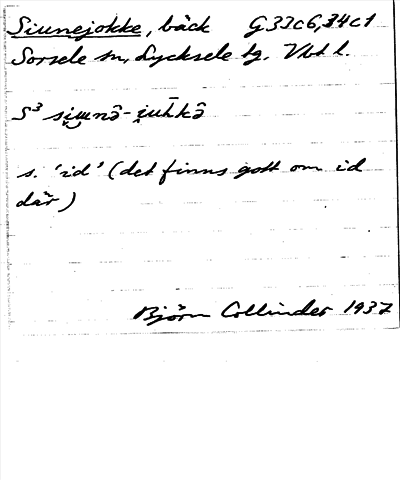 Siunejokke, bäck G 33c6, 34c1
Sorsele sn, Lycksele tg. Vbt l.
S³ si̯u̯nə̑-i̯uh̄kə̑
s. 'id' (det finns gott om id
där)
Björn Collinder 1937